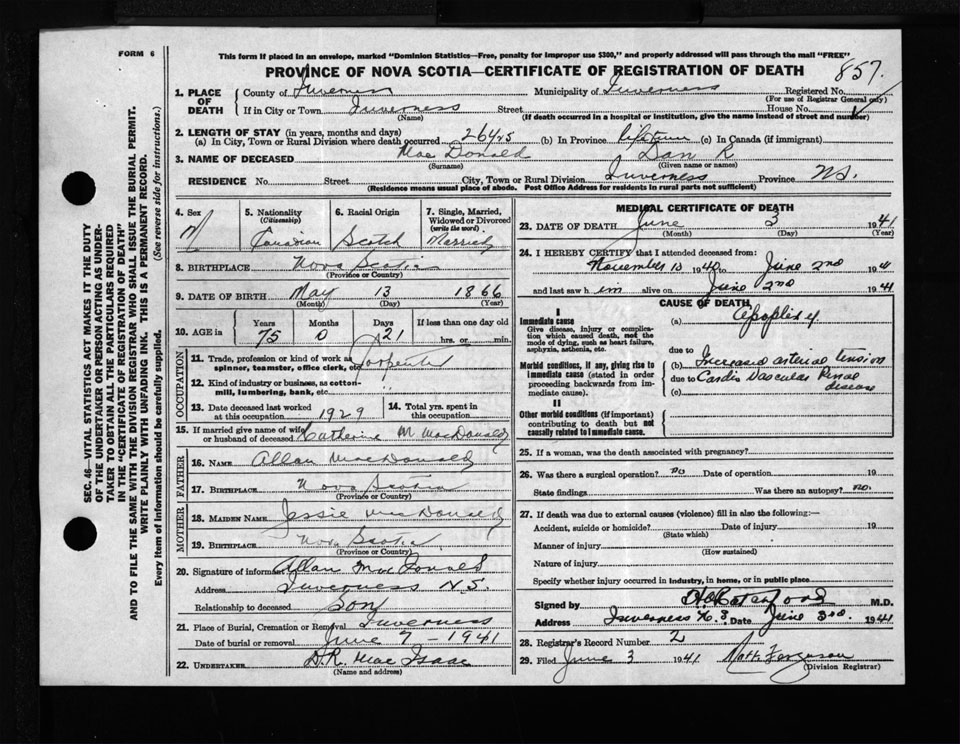 FORM 6
This form if placed in an envelope, marked "Dominion Statistics—Free, penalty for improper use $300," and properly addressed will pass through the mail "FREE"
PROVINCE OF NOVA SCOTIA—CERTIFICATE OF REGISTRATION OF DEATH
857.
1. PLACE OF DEATH
County of Inverness Municipality of Inverness Registered No.
(For use of Registrar General only)
If in City or Town Inverness Street House No.
(Name) (If death occurred in a hospital or institution, give the name instead of street and number)
2. LENGTH OF STAY (in years, months and days)
(a) In City, Town or Rural Division where death occurred 26 yrs (b) In Province lifetime (c) In Canada (if immigrant)
3. NAME OF DECEASED Mac Donald Dan R
(Surname) (Given name or names)
RESIDENCE No. Street City, Town or Rural Division Inverness Province N.S.
(Residence means usual place of abode. Post Office Address for residents in rural parts not sufficient)
SEC. 46—VITAL STATISTICS ACT MAKES IT THE DUTY
OF THE UNDERTAKER OR PERSON ACTING AS UNDER-
TAKER TO OBTAIN ALL THE PARTICULARS REQUIRED
IN THE "CERTIFICATE OF REGISTRATION OF DEATH"
AND TO FILE THE SAME WITH THE DIVISION REGISTRAR WHO SHALL ISSUE THE BURIAL PERMIT.
WRITE PLAINLY WITH UNFADING INK. THIS IS A PERMANENT RECORD.
Every item of information should be carefully supplied. (See reverse side for instructions.)
4. Sex M
5. Nationality (Citizenship) Canadian
6. Racial Origin Scotch
7. Single, Married, Widowed or Divorced (write the word) Married
8. BIRTHPLACE Nova Scotia
(Province or Country)
9. DATE OF BIRTH May 13 1866
(Month) (Day) (Year)
10. AGE in Years 75 Months 0 Days 21 If less than one day old hrs. or min.
OCCUPATION
11. Trade, profession or kind of work as spinner, teamster, office clerk, etc. Carpenter
12. Kind of industry or business, as cotton-mill, lumbering, bank, etc.
13. Date deceased last worked at this occupation 1929
14. Total yrs. spent in this occupation
15. If married give name of wife or husband of deceased Catherine M. MacDonald
FATHER
16. NAME Allan MacDonald
17. BIRTHPLACE Nova Scotia
(Province or Country)
MOTHER
18. MAIDEN NAME Jessie MacDonald
19. BIRTHPLACE Nova Scotia
(Province or Country)
20. Signature of informant Allan MacDonald
Address Inverness N.S.
Relationship to deceased Son
21. Place of Burial, Cremation or Removal Inverness
Date of burial or removal June 7 - 1941
22. UNDERTAKER D.R. MacIsaac
(Name and address)
MEDICAL CERTIFICATE OF DEATH
23. DATE OF DEATH June 3 1941
(Month) (Day) (Year)
24. I HEREBY CERTIFY that I attended deceased from:
November 10 1940 to June 2nd 1941
and last saw him alive on June 2nd 1941
CAUSE OF DEATH
I
Immediate cause
Give disease, injury or complication which caused death, not the mode of dying, such as heart failure, asphyxia, asthenia, etc.
(a) Apoplexy
due to
Morbid conditions, if any, giving rise to immediate cause (stated in order proceeding backwards from immediate cause).
(b) Increased arterial tension
due to Cardio Vascular Renal disease
(c)
II
Other morbid conditions (if important) contributing to death but not causally related to immediate cause.
25. If a woman, was the death associated with pregnancy?
26. Was there a surgical operation? no Date of operation 19
State findings Was there an autopsy? no.
27. If death was due to external causes (violence) fill in also the following:—
Accident, suicide or homicide? Date of injury 19
(State which)
Manner of injury
(How sustained)
Nature of injury
Specify whether injury occurred in industry, in home, or in public place
Signed by M.D.
Address Inverness N.S. Date June 3rd 1941
28. Registrar's Record Number 2
29. Filed June 3 1941 Ferguson
(Division Registrar)